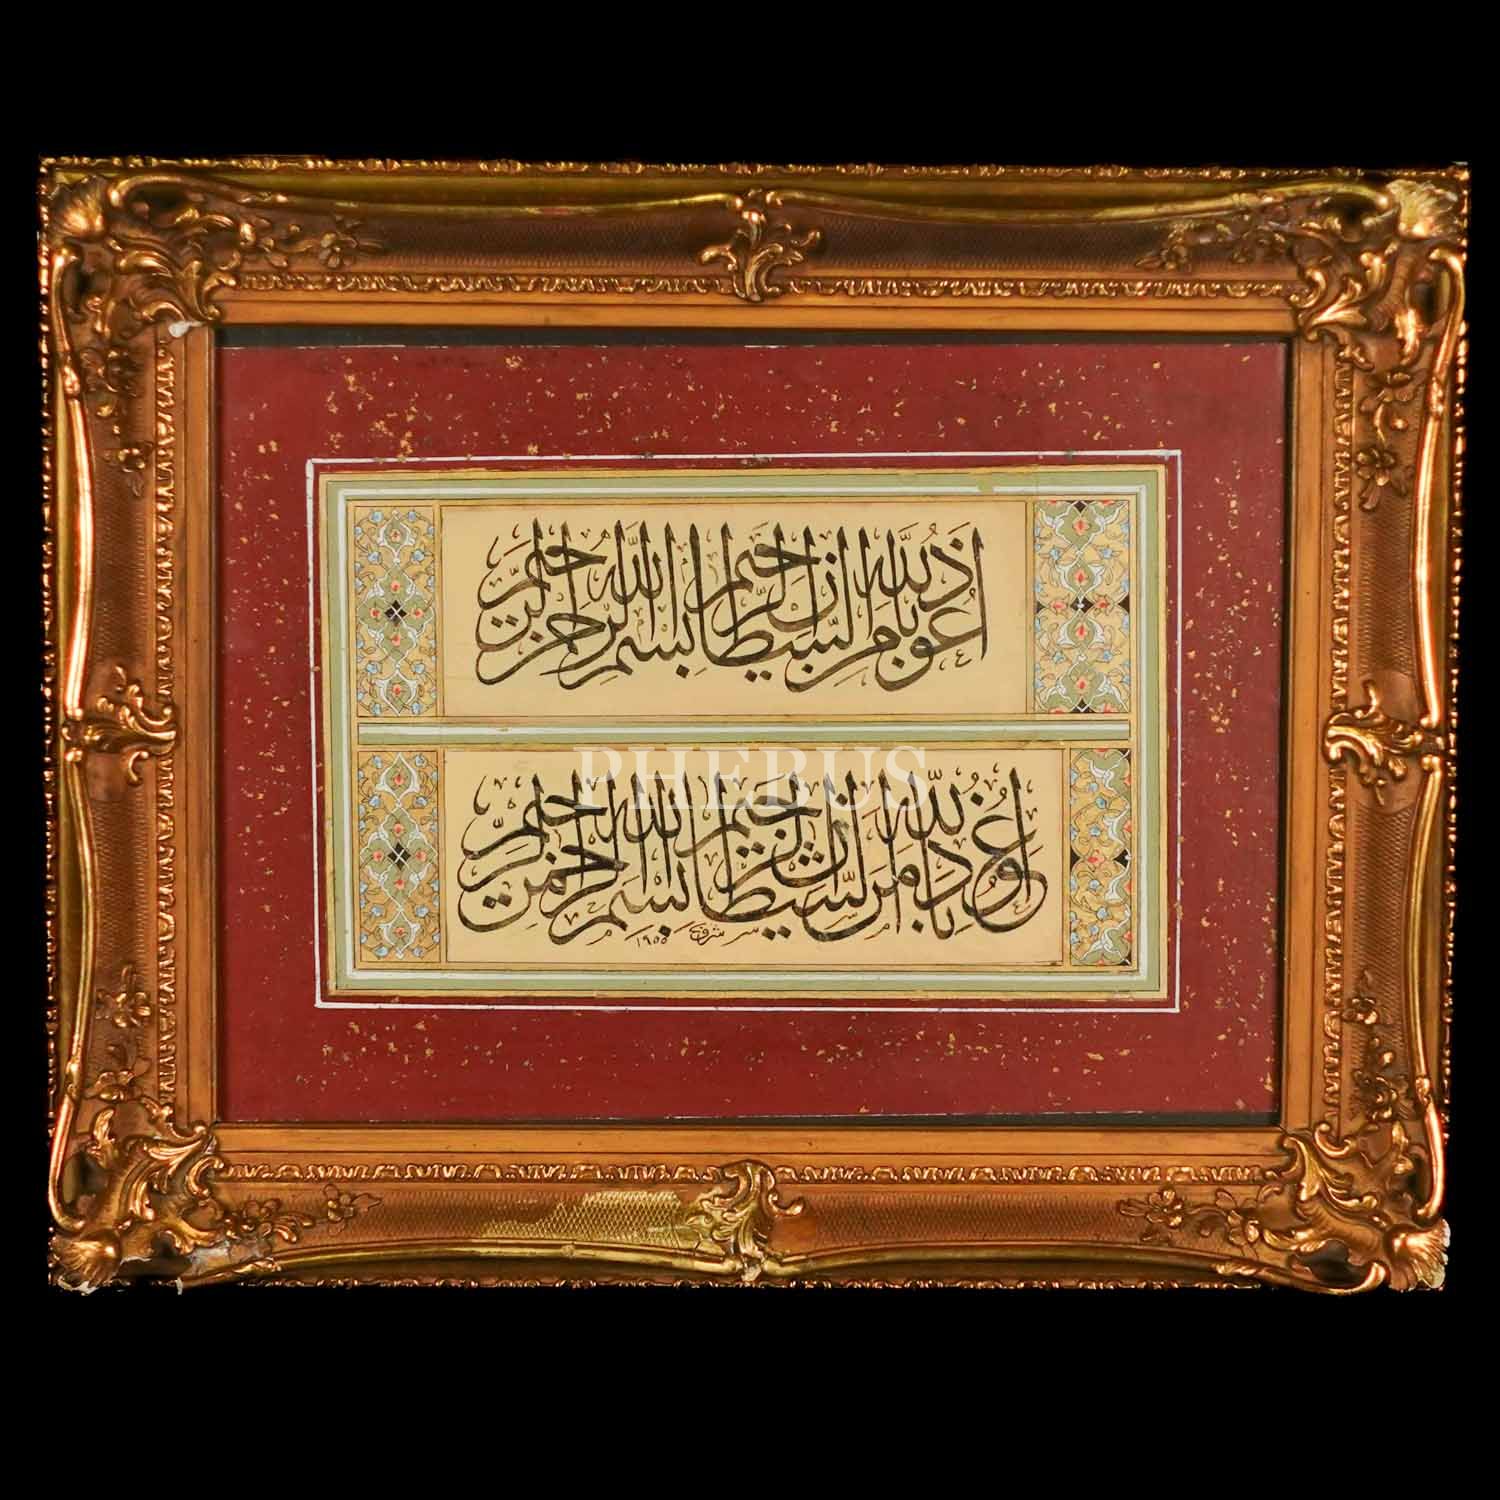 اعوذ بالله من الشيطان الرجيم بسم الله الرحمن الرحيم
PHEBUS
اعوذ بالله من الشيطان الرجيم بسم الله الرحمن الرحيم
١٩٥٥